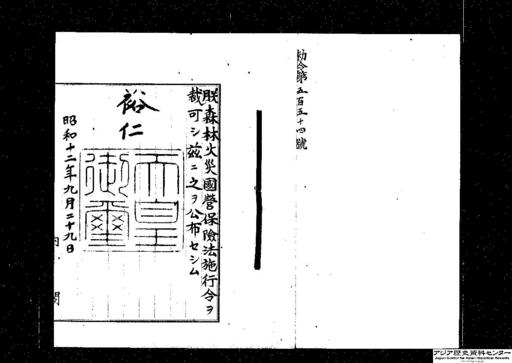 勅令第五百五十四號
朕森林火災國營保險法施行令ヲ
裁可シ茲ニ之ヲ公布セシム
裕仁
天皇御璽
昭和十二年九月二十九日
内閣
アジア歴史資料センター
Japan Center for Asian Historical Records